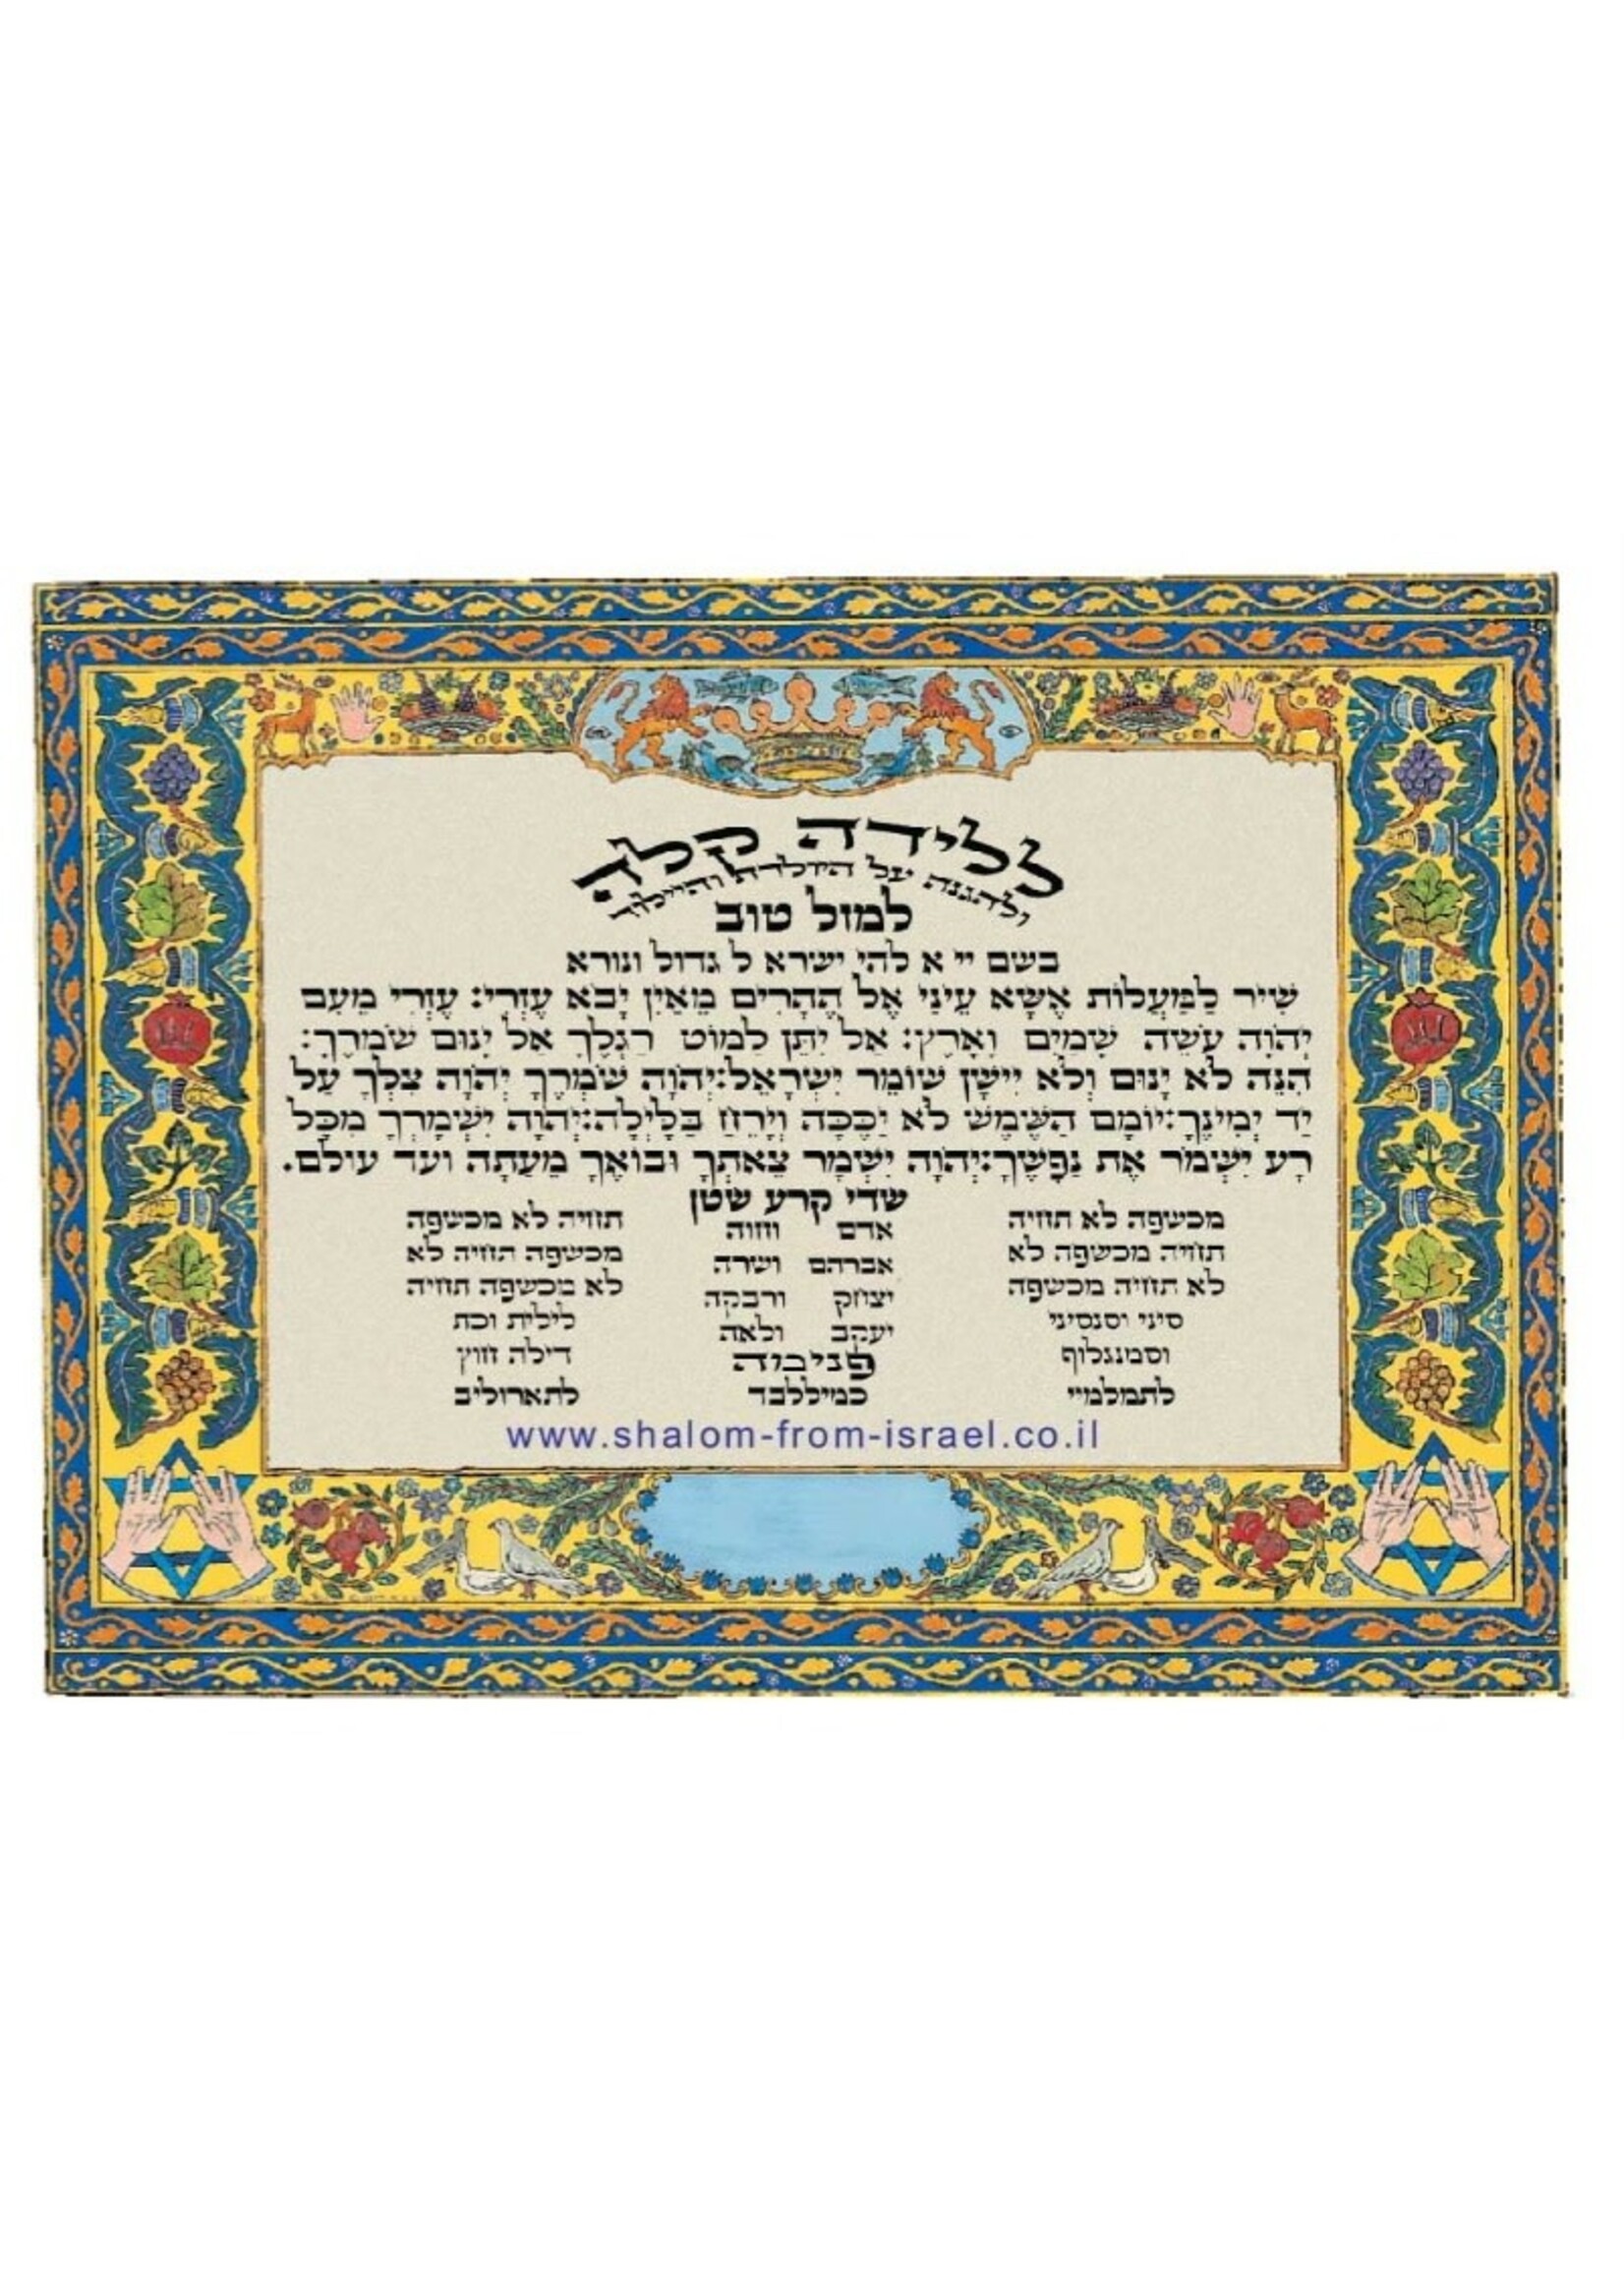 ללידה קלה
ולהגנה על היולדת והיילוד
למזל טוב
בשם יי א להי ישרא ל גדול ונורא
שִׁיר לַמַּעֲלוֹת אֶשָּׂא עֵינַי אֶל הֶהָרִים מֵאַיִן יָבֹא עֶזְרִי: עֶזְרִי מֵעִם
יְהֹוָה עֹשֵׂה שָׁמַיִם וָאָרֶץ: אַל יִתֵּן לַמּוֹט רַגְלֶךָ אַל יָנוּם שֹׁמְרֶךָ:
הִנֵּה לֹא יָנוּם וְלֹא יִישָׁן שׁוֹמֵר יִשְׂרָאֵל:יְהֹוָה שֹׁמְרֶךָ יְהֹוָה צִלְּךָ עַל
יַד יְמִינֶךָ:יוֹמָם הַשֶּׁמֶשׁ לֹא יַכֶּכָּה וְיָרֵחַ בַּלָּיְלָה:יְהֹוָה יִשְׁמָרְךָ מִכָּל
רָע יִשְׁמֹר אֶת נַפְשֶׁךָ:יְהֹוָה יִשְׁמָר צֵאתְךָ וּבוֹאֶךָ מֵעַתָּה ועד עולם.
שדי קרע שטן
מכשפה לא תחיה אדם וחוה תחיה לא מכשפה
תחיה מכשפה לא אברהם ושרה מכשפה תחיה לא
לא תחיה מכשפה יצחק ורבקה לא מכשפה תחיה
סיני וסנסיני יעקב ולאה לילית וכת
וסמנגלוף דילה חוץ
לתמלמיי כמיללבד לתארוליב
www.shalom-from-israel.co.il